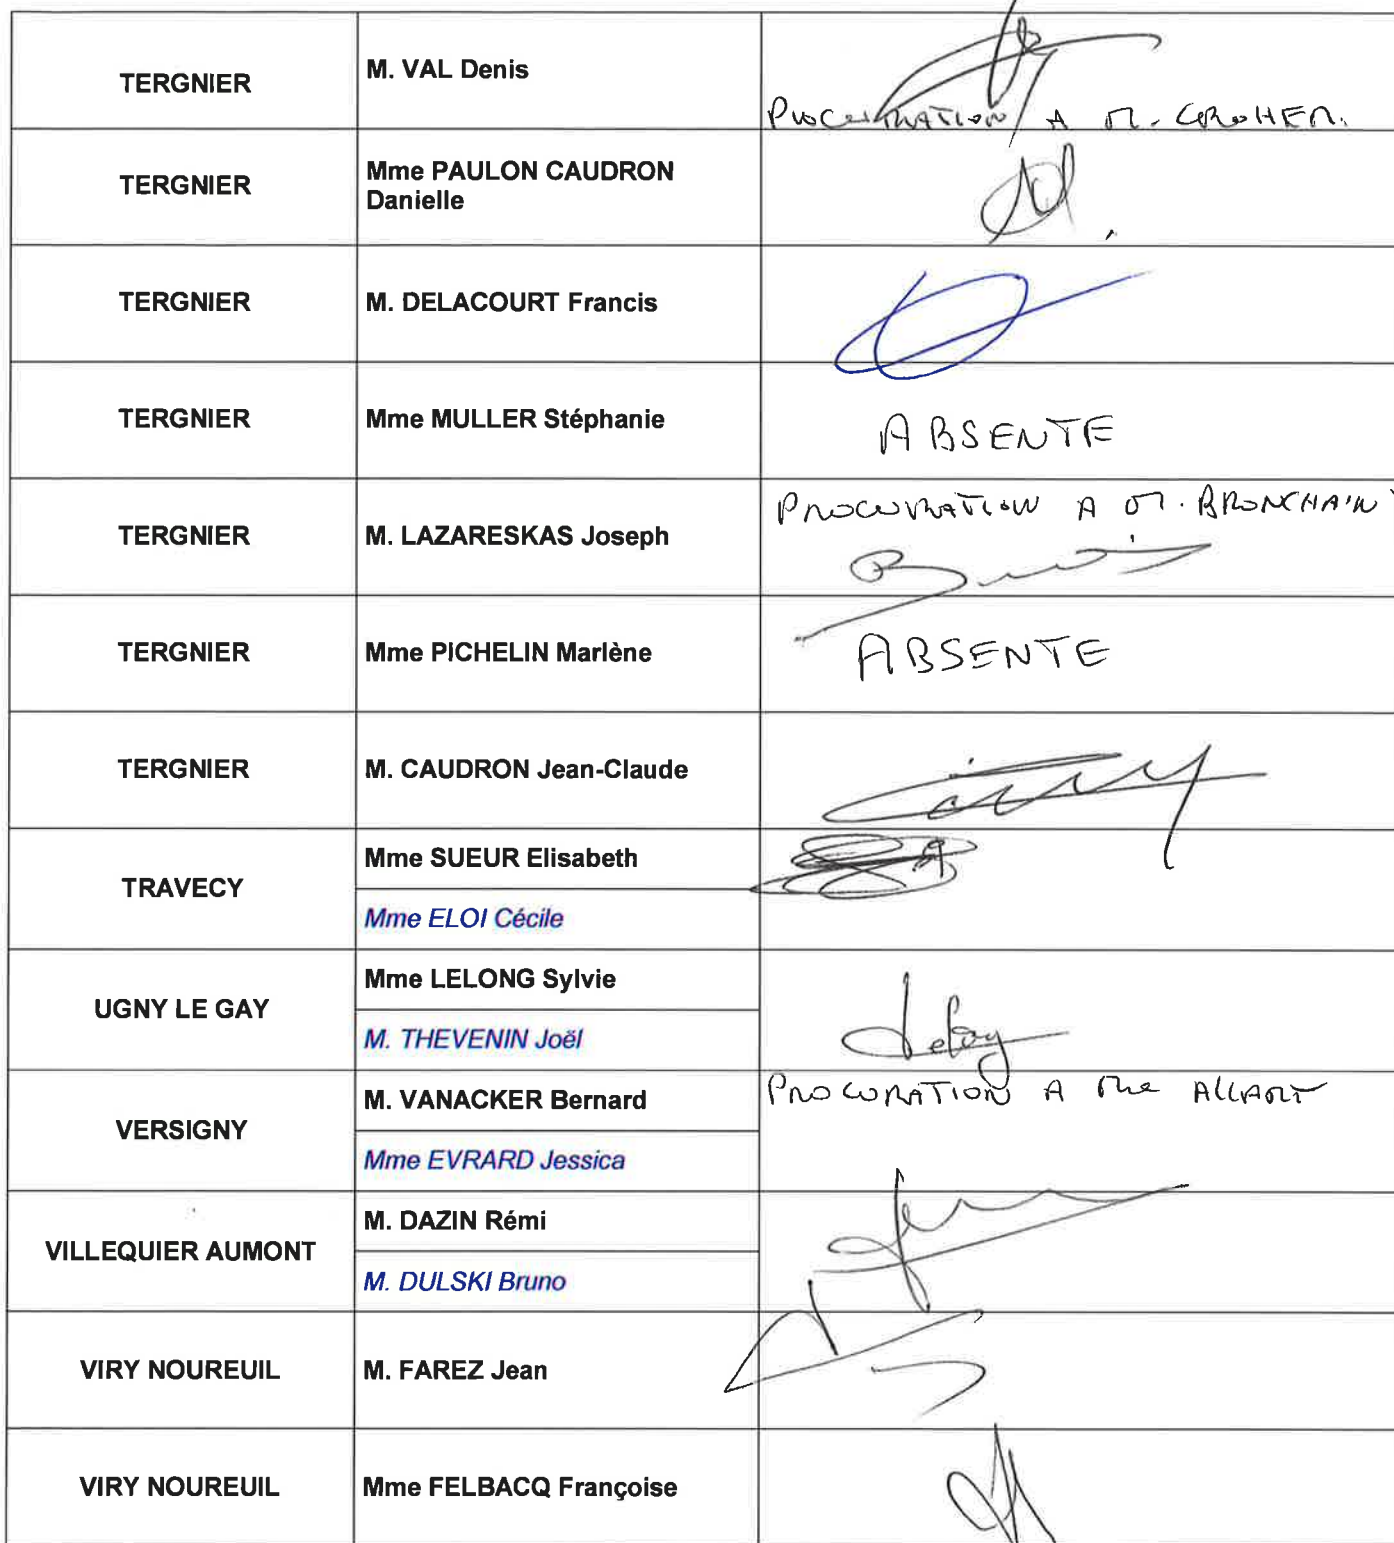 TERGNIER
M. VAL Denis
PROCURATION A M. CROHEM.
TERGNIER
Mme PAULON CAUDRON
Danielle
TERGNIER
M. DELACOURT Francis
TERGNIER
Mme MULLER Stéphanie
ABSENTE
TERGNIER
M. LAZARESKAS Joseph
PROCURATION A M. BRONCHAIN
TERGNIER
Mme PICHELIN Marlène
ABSENTE
TERGNIER
M. CAUDRON Jean-Claude
TRAVECY
Mme SUEUR Elisabeth
Mme ELOI Cécile
UGNY LE GAY
Mme LELONG Sylvie
M. THEVENIN Joël
VERSIGNY
M. VANACKER Bernard
PROCURATION A Mme ALLART
Mme EVRARD Jessica
VILLEQUIER AUMONT
M. DAZIN Rémi
M. DULSKI Bruno
VIRY NOUREUIL
M. FAREZ Jean
VIRY NOUREUIL
Mme FELBACQ Françoise